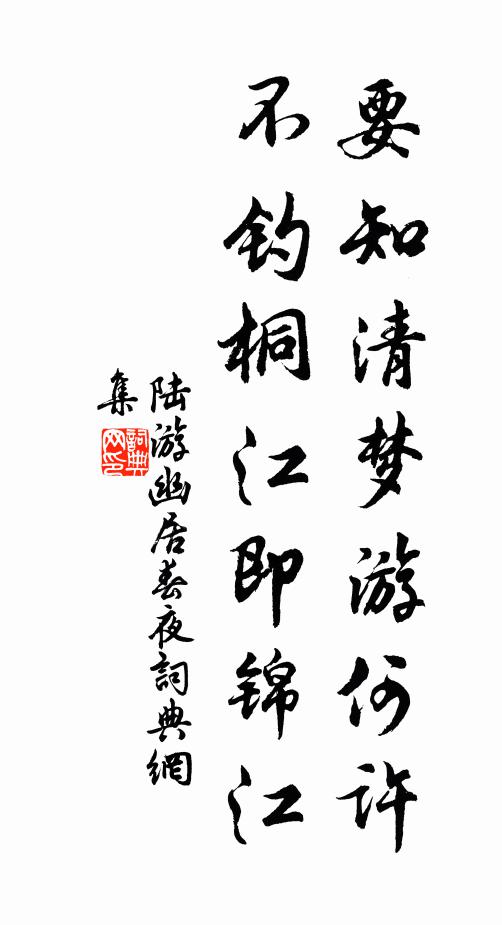 要知清梦游何许
不钓桐江即锦江
陆游幽居春夜詞典網
集
詞典
网印